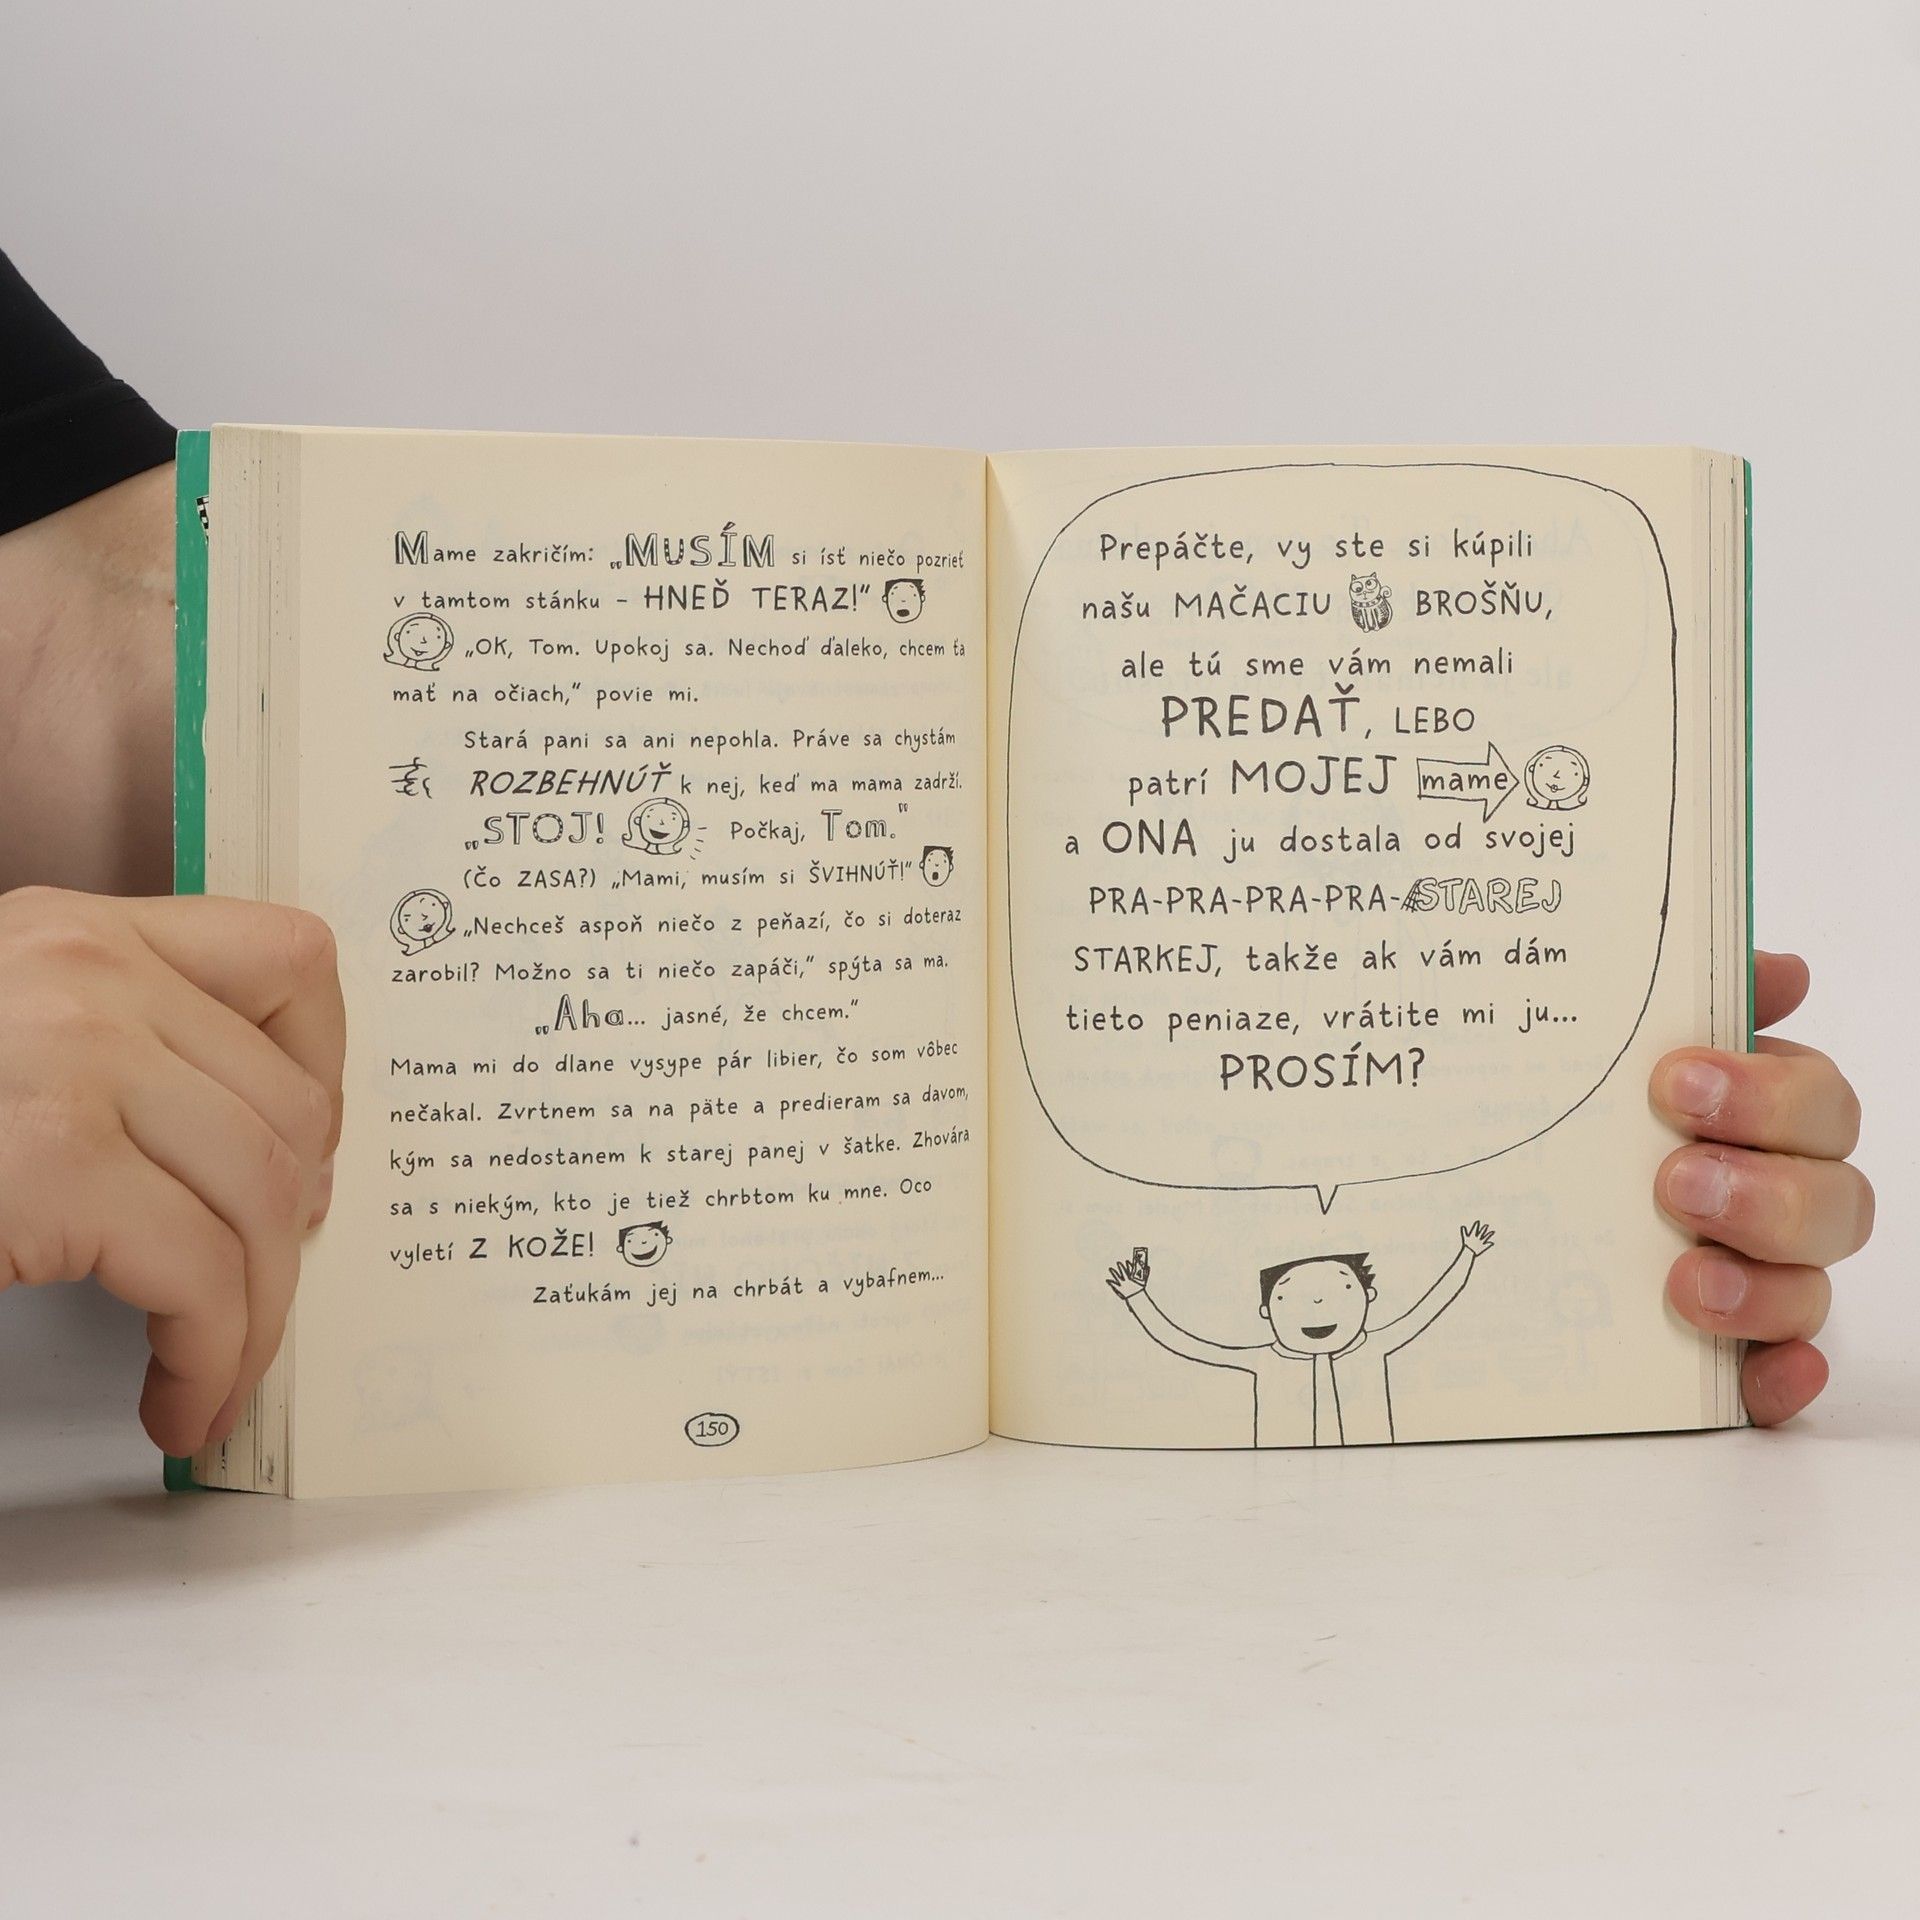 Mame zakričím: „MUSÍM si ísť niečo pozrieť
v tamtom stánku – HNEĎ TERAZ!“
„OK, Tom. Upokoj sa. Nechoď ďaleko, chcem ťa
mať na očiach,“ povie mi.
Stará pani sa ani nepohla. Práve sa chystám
ROZBEHNÚŤ k nej, keď ma mama zadrží.
„STOJ! Počkaj, Tom.“
(Čo ZASA?) „Mami, musím si ŠVIHNÚŤ!“
„Nechceš aspoň niečo z peňazí, čo si doteraz
zarobil? Možno sa ti niečo zapáči,“ spýta sa ma.
„Aha... jasné, že chcem.“
Mama mi do dlane vysype pár libier, čo som vôbec
nečakal. Zvrtnem sa na päte a predieram sa davom,
kým sa nedostanem k starej panej v šatke. Zhovára
sa s niekým, kto je tiež chrbtom ku mne. Oco
vyletí Z KOŽE!
Zaťukám jej na chrbát a vybafnem...
150
Prepáčte, vy ste si kúpili
našu MAČACIU BROŠŇU,
ale tú sme vám nemali
PREDAŤ, LEBO
patrí MOJEJ mame
a ONA ju dostala od svojej
PRA-PRA-PRA-PRA-STAREJ
STARKEJ, takže ak vám dám
tieto peniaze, vrátite mi ju...
PROSÍM?